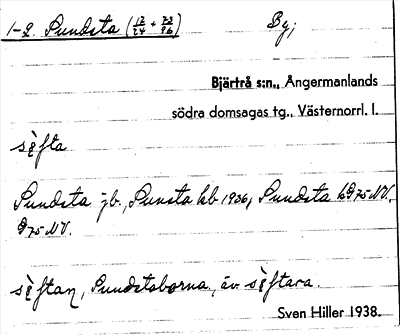 1-2. Sundsta (12/24 + 72/96) By;
Bjärtrå s:n., Ångermanlands
södra domsagas tg., Västernorrl. l.
sèfta
Sundsta jb., Sunsta kb 1936, Sundsta
N.V.
sèftan, Sundstaborna, äv. sèftara.
Sven Hiller 1938.